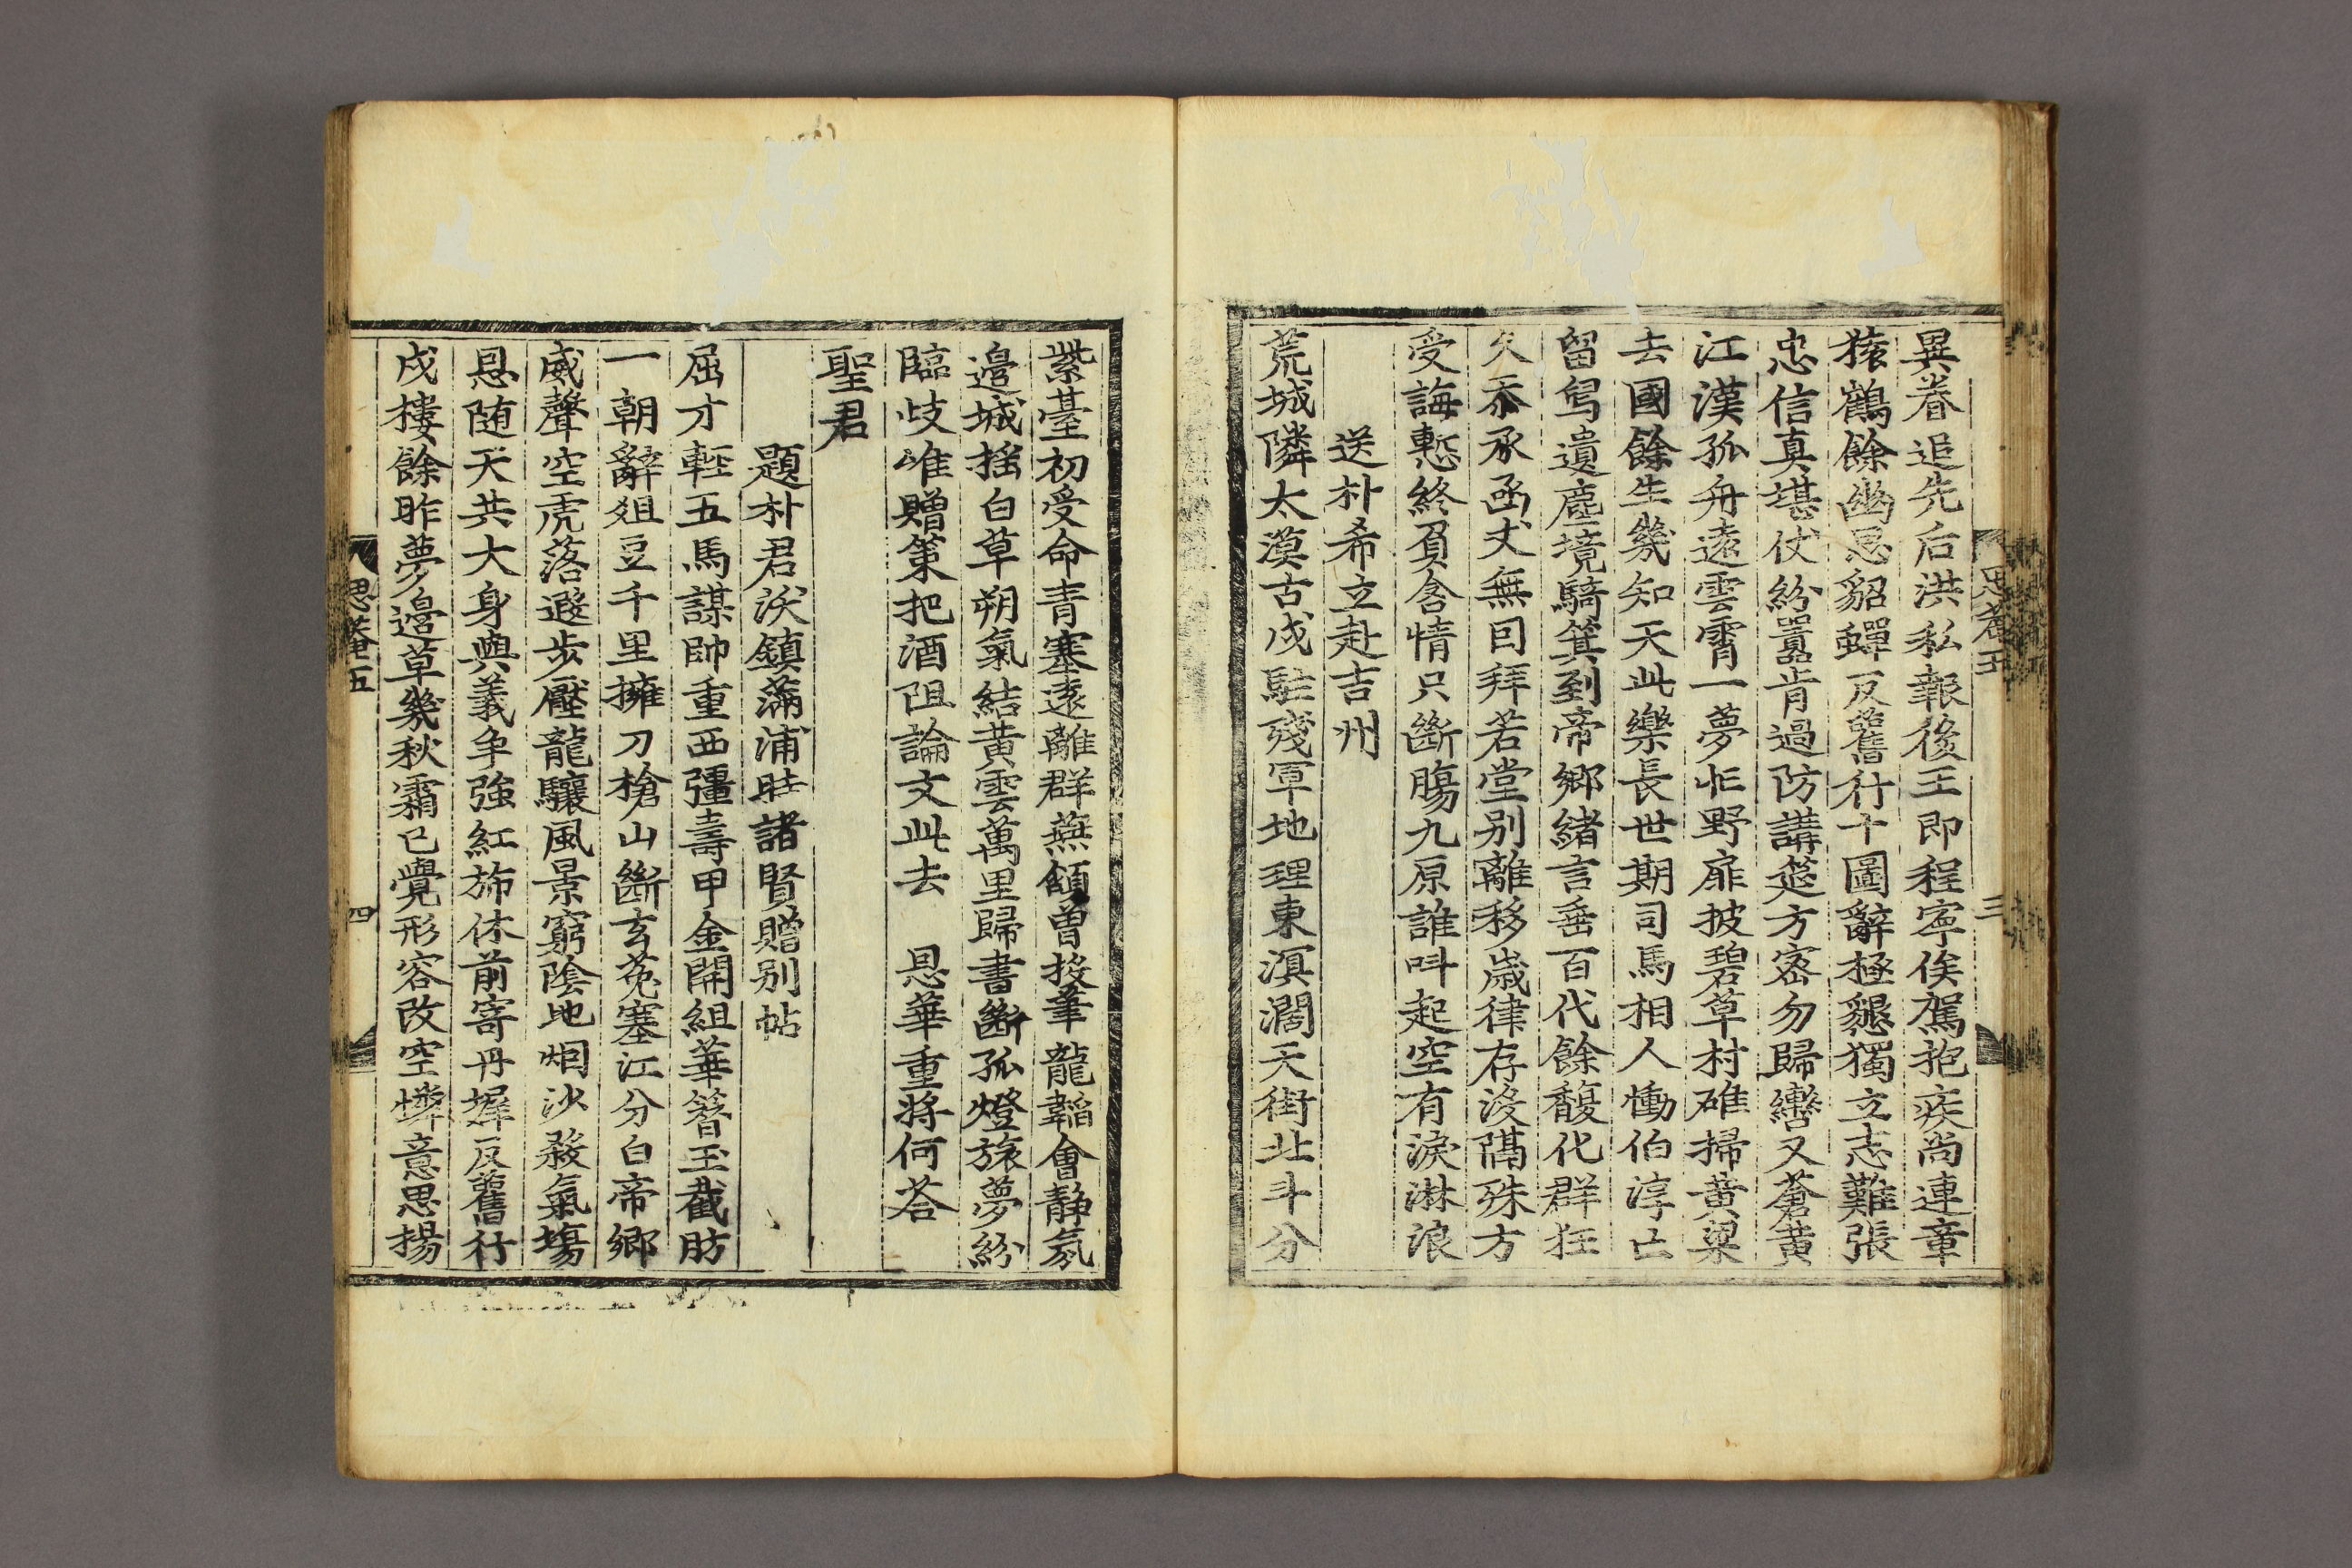 思菴五
三
異眷追先后洪私報後王即程寧俟駕抱疾尚連章
猿鶴餘幽思貂蟬反舊行十圖辭極懇獨立志難張
忠信真堪仗紛囂肯過防講筵方密勿歸轡又蒼黃
江漢孤舟遠雲霄一夢忙野扉披碧草村碓掃黃粱
去國餘生幾知天此樂長世期司馬相人慟伯淳亡
留舃遺塵境騎箕到帝鄉緒言垂百代餘馥化群狂
久忝承函丈無因拜若堂別離移歲律存沒隔殊方
受誨慙終負含情只斷腸九原誰呌起空有淚淋浪
送朴希立赴吉州
荒城隣太漠古戍駐殘軍地理東溟濶天街北斗分
紫䑓初受命青塞遠離群燕頷曽投筆龍韜會静氛
邉城揺白草朔氣結黄雲萬里歸書斷孤燈旅夢紛
臨歧唯贈策把酒阻論文此去　恩華重將何荅
聖君
題朴君洑鎮蒲浦時諸賢贈别帖
屈才輕五馬謀帥重西彊壽甲金開組華簪玉截肪
一朝辭俎豆千里擁刀槍山斷玄菟塞江分白帝鄉
威聲空虎落遐步壓龍驤風景窮陰地烟沙殺氣塲
恩随天共大身與義争強紅斾休前寄丹墀反舊行
戍樓餘昨夢邉草幾秋霜已覺形容改空憐意思揚
思菴五
四